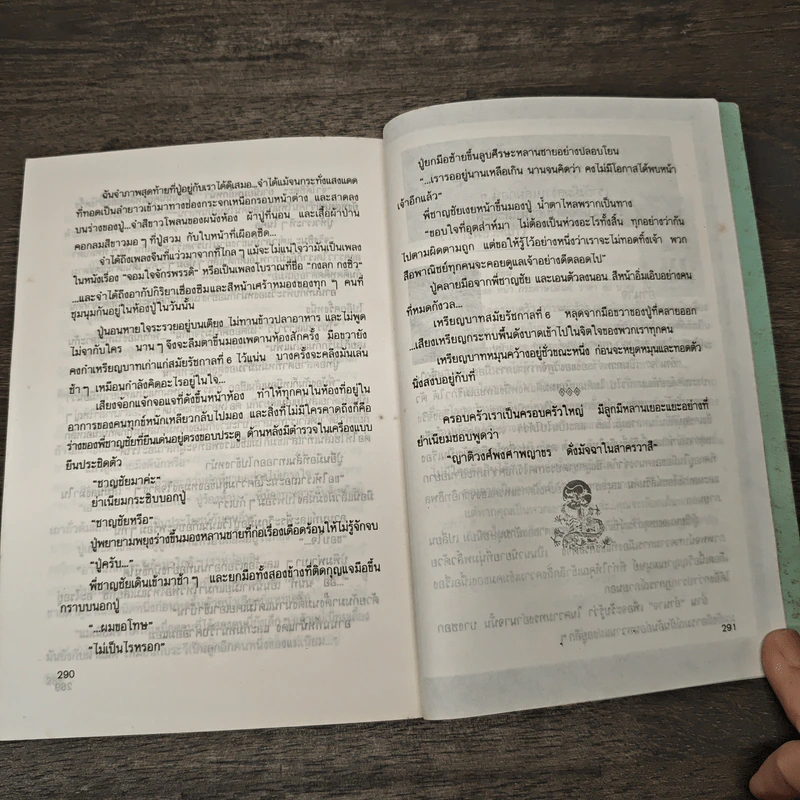 ฉันจำภาพสุดท้ายที่ปู่อยู่กับเราได้ดีเสมอ...จำได้แม้จนกระทั่งแสงแดด
ที่ทอดเป็นลำยาวเข้ามาทางช่องกระจกเหนือกรอบหน้าต่าง และสาดลง
บนร่างของปู่...จำสีขาวโพลนของผนังห้อง ผ้าปูที่นอน และเสื้อผ้าป่าน
คอกลมสีขาวมอ ๆ ที่ปู่สวม กับใบหน้าที่เผือดซีด...
จำได้ถึงเพลงจีนที่แว่วมาจากที่ไกล ๆ แม้จะไม่แน่ใจว่ามันเป็นเพลง
ในหนังเรื่อง "จอมใจจักรพรรดิ" หรือเป็นเพลงโบราณที่ชื่อ "กงลก กงชิว"
...และจำได้ถึงอากัปกิริยาเชื่องซึมและสีหน้าเศร้าหมองของทุก ๆ คนที่
ชุมนุมกันอยู่ในห้องปู่ในวันนั้น
ปู่นอนหายใจระรวยอยู่บนเตียง ไม่ทานข้าวปลาอาหาร และไม่พูด
ไม่จากับใคร นาน ๆ จึงจะลืมตาขึ้นมองเพดานห้องสักครั้ง มือขวายัง
คงกำเหรียญบาทเก่าแก่สมัยรัชกาลที่ 6 ไว้แน่น บางครั้งจะคลึงมันเล่น
ช้า ๆ เหมือนกำลังคิดอะไรอยู่ในใจ...
เสียงจ้อกแจ้กจอแจที่ดังขึ้นหน้าห้อง ทำให้ทุกคนในห้องที่อยู่ใน
อาการของคนทุกข์หนักเหลียวกลับไปมอง และสิ่งที่ไม่มีใครคาดถึงก็คือ
ร่างของพี่ชาญชัยที่ยืนเด่นอยู่ตรงขอบประตู ด้านหลังมีตำรวจในเครื่องแบบ
ยืนประชิดตัว
"ชาญชัยมาค่ะ"
ย่าเนียมกระซิบบอกปู่
"ชาญชัยหรือ"
ปู่พยายามพยุงร่างขึ้นมองหลานชายที่ก่อเรื่องเดือดร้อนให้ไม่รู้จักจบ
"ปู่ครับ..."
พี่ชาญชัยเดินเข้ามาช้า ๆ และยกมือทั้งสองข้างที่ติดกุญแจมือขึ้น
กราบบนอกปู่
"...ผมขอโทษ"
"ไม่เป็นไรหรอก"
290
ปู่ยกมือซ้ายขึ้นลูบศีรษะหลานชายอย่างปลอบโยน
"...เรารออยู่นานเหลือเกิน นานจนคิดว่า คงไม่มีโอกาสได้พบหน้า
เจ้าอีกแล้ว"
พี่ชาญชัยเงยหน้าขึ้นมองปู่ น้ำตาไหลพรากเป็นทาง
"ขอบใจที่อุตส่าห์มา ไม่ต้องเป็นห่วงอะไรทั้งสิ้น ทุกอย่างว่ากัน
ไปตามผิดตามถูก แต่ขอให้รู้ไว้อย่างหนึ่งว่าเราจะไม่ทอดทิ้งเจ้า พวก
สือพาณิชย์ทุกคนจะคอยดูแลเจ้าอย่างดีตลอดไป"
ปู่คลายมือจากพี่ชาญชัย และเอนตัวลงนอน สีหน้าอิ่มเอิบอย่างคน
ที่หมดกังวล...
เหรียญบาทสมัยรัชกาลที่ 6 หลุดจากมือขวาของปู่ที่คลายออก
...เสียงเหรียญกระทบพื้นดังบาดเข้าไปในจิตใจของพวกเราทุกคน
เหรียญบาทหมุนคว้างอยู่ชั่วขณะหนึ่ง ก่อนจะหยุดหมุนและทอดตัว
นิ่งสงบอยู่กับที่
ครอบครัวเราเป็นครอบครัวใหญ่ มีลูกมีหลานเยอะแยะอย่างที่
ย่าเนียมชอบพูดว่า
"ญาติวงศ์พงศาพญาขร ดั่งมัจฉาในสาครวาสี"
291